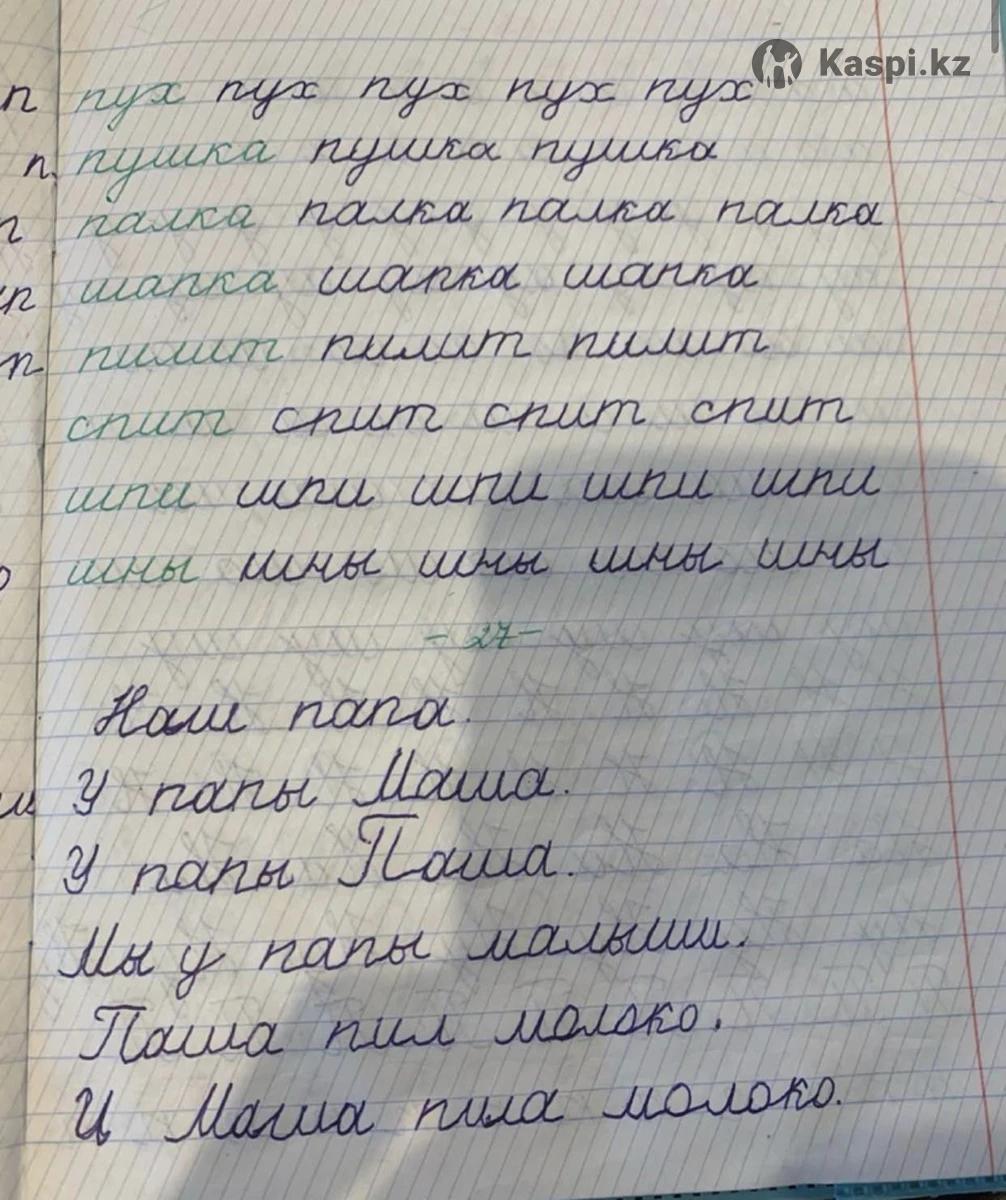 Kaspi.kz
п пух пух пух пух пух
п. пушка пушка пушка
п палка палка палка палка
п шапка шапка шапка
п пилит пилит пилит
спит спит спит спит
шпи шпи шпи шпи шпи
шны шны шны шны шны
- 27 -
Наш папа.
У папы Маша.
У папы Паша.
Мы у папы малыши.
Паша пил молоко.
И Маша пила молоко.